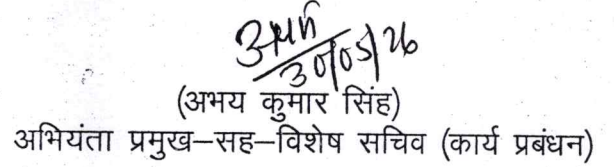 अभय
30/05/26
(अभय कुमार सिंह)
अभियंता प्रमुख–सह–विशेष सचिव (कार्य प्रबंधन)